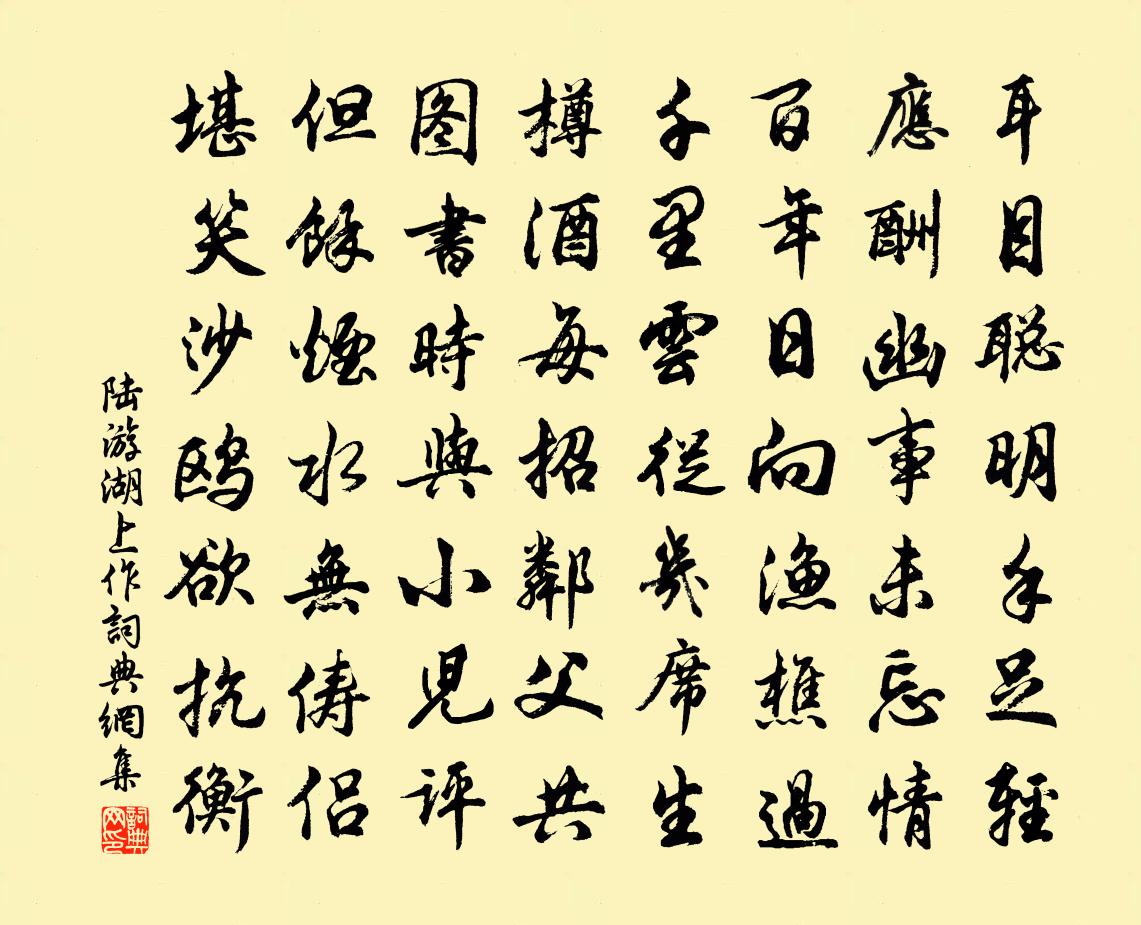 耳目聡明手足輕
應酬幽事未忘情
百年日向漁樵過
千里雲從几席生
樽酒每招鄰父共
图書時與小児評
但餘煙水無儔侣
堪笑沙鸥欲抗衡
陆游湖上作詞典網集
詞典网印